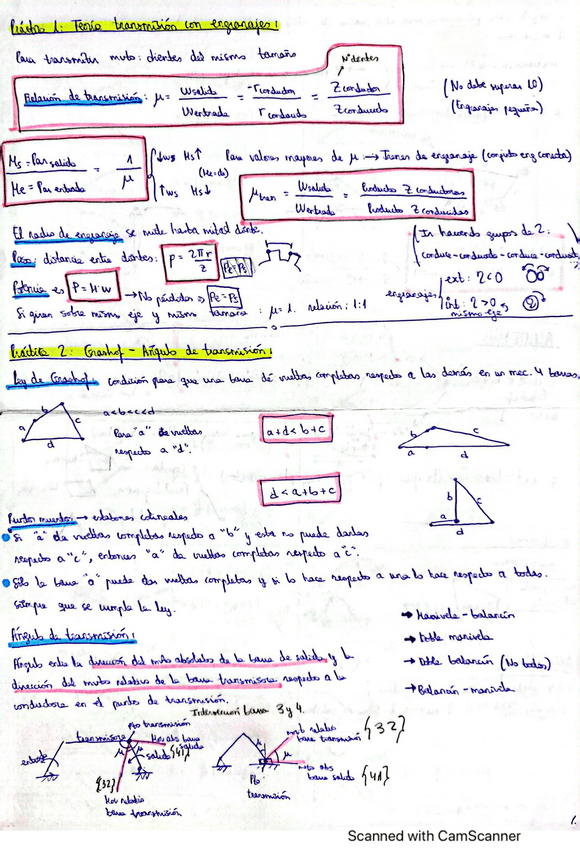 Práctica 1: Teoría transmisión con engranajes:
Para transmitir mvto: dientes del mismo tamaño
Nºdientes
Relación de transmisión: μ = Wsalida / Wentrada = -rconductor / rconducido = Zconductor / Zconducido
(No debe superar 10)
(Engranajes pequeños)
Ms = Par salida / Me = Par entrada = 1 / μ
↓ws Ms↑
(Me=cte)
↑ws Ms↓
Para valores mayores de μ → Trenes de engranaje (conjunto eng conecta)
μtren = Wsalida / Wentrada = Producto Z conductoras / Producto Z conducidas
El radio de engranaje se mide hasta mitad diente.
Paso: distancia entre dientes: P = 2πr / z
Ir haciendo grupos de 2:
conduce-conducido-conduce-conducido
Potencia es P = M·w → No pérdidas ⇒ Pe = Ps
engranajes
ext: η<0
int: η>0
mismo eje
Si giran sobre mismo eje y mismo tamaño: μ=1. relación: 1:1
Práctica 2: Grashof - Ángulo de transmisión:
Ley de Grashof: condición para que una barra dé vueltas completas respecto a las demás en un mec. 4 barras,
a<b<c<d
Para "a" de vueltas
respecto a "d".
a+d < b+c
d < a+b+c
a
b
c
d
a
b
c
d
a
b
c
d
Puntos muertos → eslabones colineales
Si "a" da vueltas completas respecto a "b" y esta no puede darlas
respecto a "c", entonces "a" da vueltas completas respecto a "c".
Sólo la barra "a" puede dar vueltas completas y si lo hace respecto a una lo hace respecto a todas.
siempre que se cumpla la ley.
→ Manivela - balancín
→ Doble manivela
→ Doble balancín (No todas)
→ Balancín - manivela
Ángulo de transmisión:
Ángulo entre la dirección del mvto absoluto de la barra de salida y la
dirección del mvto relativo de la barra transmisora respecto a la
conductora en el punto de transmisión.
Intersección barra 3 y 4.
Pto transmisión
transmisora
Mov abs barra
salida
{41}
entrada
salida
μ
{32}
Mov relativo
barra transmisión
mvto relativo
barra transmisión
{32}
μ
mvto abs
barra salida
{41}
Pto
transmisión
1.
Scanned with CamScanner